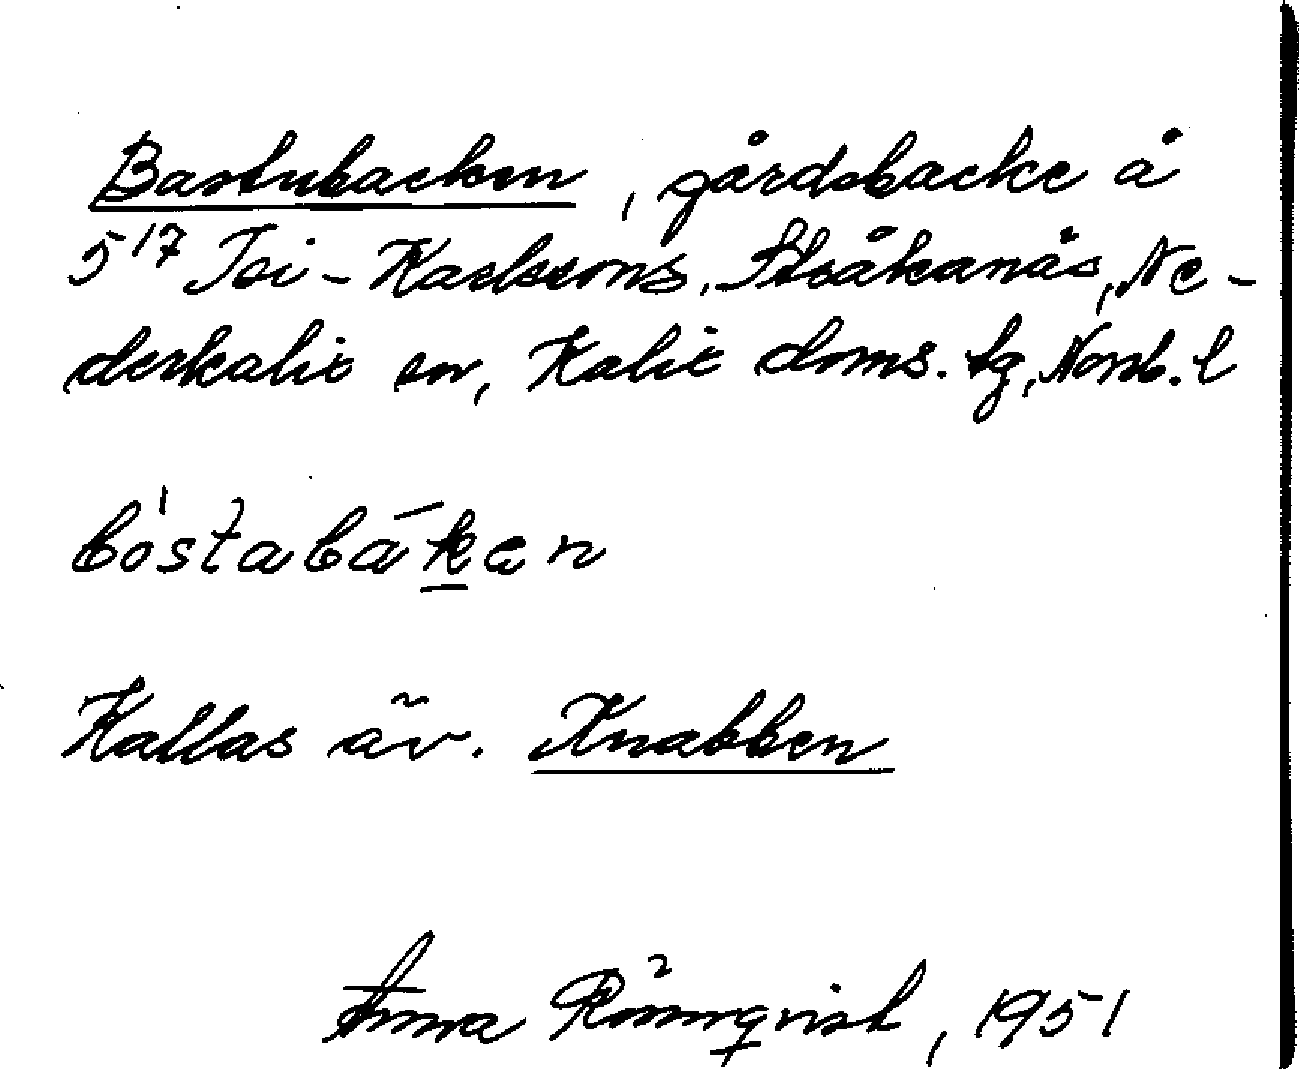 Bastubacken, gårdsbacke å
5¹⁷ Joi-Karlssons, Stråkanäs, Ne-
derkalix sn, Kalix doms. tg, Norrb. l
bóstabák̲en
Kallas äv. Knabben
Anna Rönnqvist, 1951